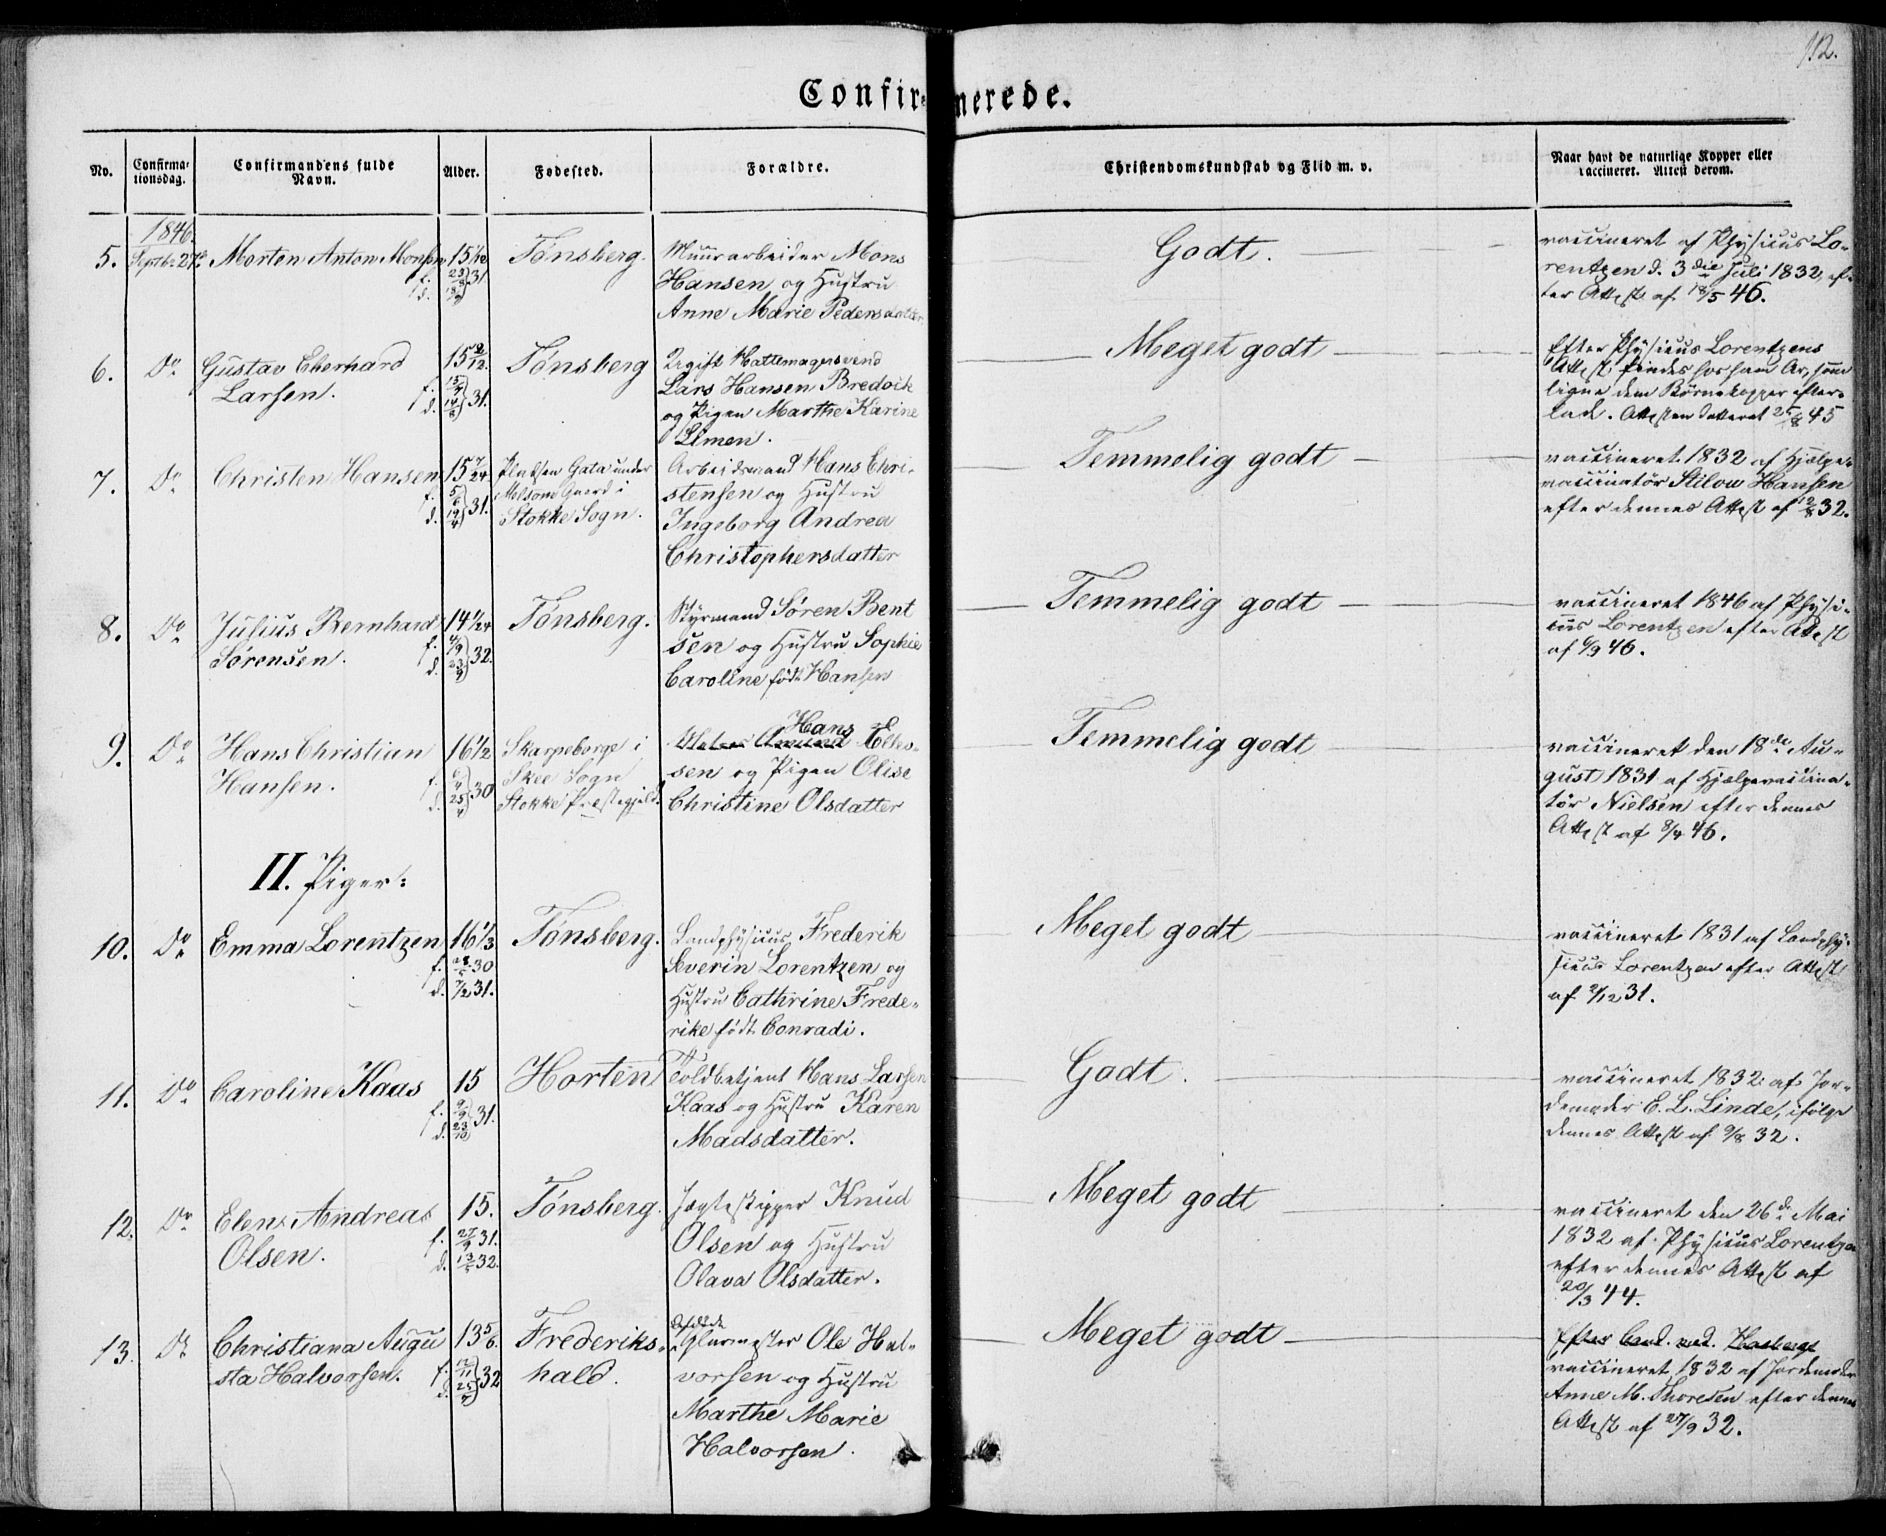 112.
Confirmerede.
No.
Confirma-
tionsdag.
Confirmandens fulde
Navn.
Alder.
Fødested.
Forældre.
Christendomskundskab og Flid m. v.
Naar havt de naturlige Kopper eller
vaccineret. Attest derom.
1846.
5. Septbr 27de Morten Anton Monsen 15 1/12 Tønsberg. Muurarbeider Mons
Hansen og Hustru
Anne Marie Pedersdatter
Godt.
vaccineret af Physicus Lo-
rentzen d. 3die Juli 1832, ef-
ter Attest af 18/5 46.
6. Do Gustav Eberhard
Larsen.
15 Tønsberg
f. d. 31.
Ugift Hattemagersvend
Lars Hansen Bredvik
og Pigen Marthe Karine
Limen.
Meget godt
Efter Physicus Lorentzens
Attest findes hos ham Ar, som
ligne dem Børnekopper efter-
lade. Attesten dateret 25/8 45
7. Do Christen Hansen 15 7/24
f. d. 31.
Pladsen Gata under
Melsom Gaard i
Stokke Sogn.
Arbeidsmand Hans Chri-
stensen og Hustru
Ingeborg Andrea
Christophersdatter
Temmelig godt
vaccineret 1832 af Hjælpe-
vaccinatör Stilow Hansen
efter dennes Attest af 12/8 32.
8. Do Julius Bernhard
Sørensen.
14 1/24
f. d. 32.
Tønsberg.
Styrmand Søren Bent
sen og Hustru Sophie
Caroline født Hansen
Temmelig godt
vaccineret 1846 af Physi-
cus Lorentzen efter Attest
af 6/9 46.
9. Do Hans Christian
Hansen.
16 1/2
f. d. 30
Skarpeborge i
Skee Sogn
Stokke Præstegjeld.
Hans
sen og Pigen Olise
Christine Olsdatter
Temmelig godt
vaccineret den 18de Au-
gust 1831 af Hjælpevaccina-
tör Nielsen efter dennes
Attest af 8/4 46.
II. Piger:
10. Do Emma Lorentzen 16 1/3
f. 30
d. 7/2 31.
Tønsberg.
Landphysicus Frederik
Severin Lorentzen og
Hustru Cathrine Frede-
rike født Conradi.
Meget godt
vaccineret 1831 af Landphy-
sicus Lorentzen efter Attest
af 2/12 31.
11. Do Caroline Kaas 15
f. 9/9 d. 23/10 31.
Horten
Toldbetjent Hans Larsen
Kaas og Hustru Karen
Madsdatter.
Godt.
vaccineret 1832 af Jor-
demoder E. L. Linde, ifølge
dennes Attest af 9/8 32.
12. Do Elen Andreas
Olsen.
15.
f. 27/9 31.
d. 13/5 32.
Tønsberg.
Jagteskipper Knud
Olsen og Hustru
Olava Olsdatter.
Meget godt
vaccineret den 26de Mai
1832 af Physicus Lorentzen
efter dennes Attest af
20/3 44.
13. Do Christiana Augu
sta Halvorsen.
13 5/6.
f. d. 32
Frederiks-
hald.
Afdøde
Glarmester Ole Hal-
vorsen og Hustru
Marthe Marie
Halvorsen.
Meget godt
vaccineret 1832 af Jordemoder
Anne M. Thoresen efter dennes
Attest af 27/9 32.